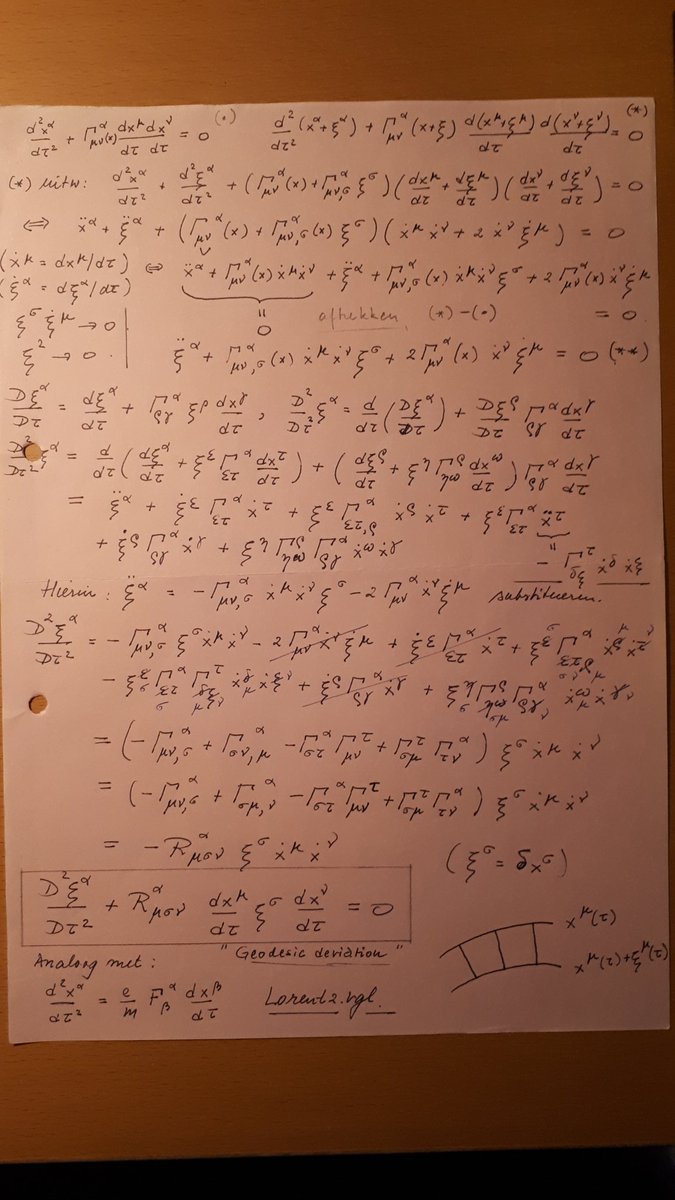 d²x^α/dτ² + Γ^α_μν(x) dx^μ/dτ dx^ν/dτ = 0 (·) d²/dτ² (x^α+ξ^α) + Γ^α_μν (x+ξ) d(x^μ+ξ^μ)/dτ d(x^ν+ξ^ν)/dτ = 0 (*)
(*) uitw: d²x^α/dτ² + d²ξ^α/dτ² + (Γ^α_μν(x) + Γ^α_μν,σ ξ^σ) (dx^μ/dτ + dξ^μ/dτ) (dx^ν/dτ + dξ^ν/dτ) = 0
⇔ ẍ^α + ξ̈^α + (Γ^α_μν(x) + Γ^α_μν,σ(x) ξ^σ) (ẋ^μ ẋ^ν + 2 ẋ^ν ξ̇^μ) = 0
(ẋ^μ = dx^μ/dτ) ⇔ ẍ^α + Γ^α_μν(x) ẋ^μ ẋ^ν + ξ̈^α + Γ^α_μν,σ(x) ẋ^μ ẋ^ν ξ^σ + 2 Γ^α_μν(x) ẋ^ν ξ̇^μ
(ξ̇^α = dξ^α/dτ) = 0 aftrekken (*) - (·) = 0
ξ^σ ξ̇^μ → 0
ξ² → 0 ξ̈^α + Γ^α_μν,σ(x) ẋ^μ ẋ^ν ξ^σ + 2 Γ^α_μν(x) ẋ^ν ξ̇^μ = 0 (**)
Dξ^α/Dτ = dξ^α/dτ + Γ^α_ργ ξ^ρ dx^γ/dτ , D²/Dτ² ξ^α = d/dτ (Dξ^α/Dτ) + Dξ^ρ/Dτ Γ^α_ργ dx^γ/dτ
D²/Dτ² ξ^α = d/dτ (dξ^α/dτ + ξ^ε Γ^α_ετ dx^τ/dτ) + (dξ^ρ/dτ + ξ^η Γ^ρ_ηω dx^ω/dτ) Γ^α_ργ dx^γ/dτ
= ξ̈^α + ξ̇^ε Γ^α_ετ ẋ^τ + ξ^ε Γ^α_ετ,ρ ẋ^ρ ẋ^τ + ξ^ε Γ^α_ετ ẍ^τ
+ ξ̇^ρ Γ^α_ργ ẋ^γ + ξ^η Γ^ρ_ηω Γ^α_ργ ẋ^ω ẋ^γ = - Γ^τ_δξ ẋ^δ ẋ^ξ
Hierin: ξ̈^α = -Γ^α_μν,σ ẋ^μ ẋ^ν ξ^σ - 2 Γ^α_μν ẋ^ν ξ̇^μ substitueren.
D²ξ^α/Dτ² = - Γ^α_μν,σ ξ^σ ẋ^μ ẋ^ν - 2 Γ^α_μν ẋ^ν ξ̇^μ + ξ̇^ε Γ^α_ετ ẋ^τ + ξ^ε Γ^α_ετ,ρ ẋ^ρ ẋ^τ
- ξ^ε Γ^α_ετ Γ^τ_δξ ẋ^δ ẋ^ξ + ξ̇^ρ Γ^α_ργ ẋ^γ + ξ^η Γ^ρ_ηω Γ^α_ργ ẋ^ω ẋ^γ
= (-Γ^α_μν,σ + Γ^α_σν,μ - Γ^α_στ Γ^τ_μν + Γ^τ_σμ Γ^α_τν) ξ^σ ẋ^μ ẋ^ν
= (-Γ^α_μν,σ + Γ^α_σμ,ν - Γ^α_στ Γ^τ_μν + Γ^τ_σμ Γ^α_τν) ξ^σ ẋ^μ ẋ^ν
= - R^α_μσν ξ^σ ẋ^μ ẋ^ν (ξ^σ = δx^σ)
D²ξ^α/Dτ² + R^α_μσν dx^μ/dτ ξ^σ dx^ν/dτ = 0
x^μ(τ)
x^μ(τ)+ξ^μ(τ)
"Geodesic deviation"
Analoog met:
d²x^α/dτ² = e/m F^α_β dx^β/dτ Lorentz.vgl.